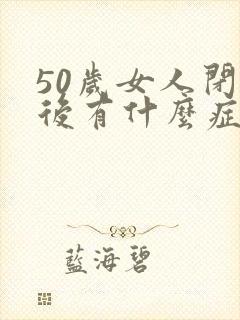 50歲女人閉
後有什麼症
藍海碧